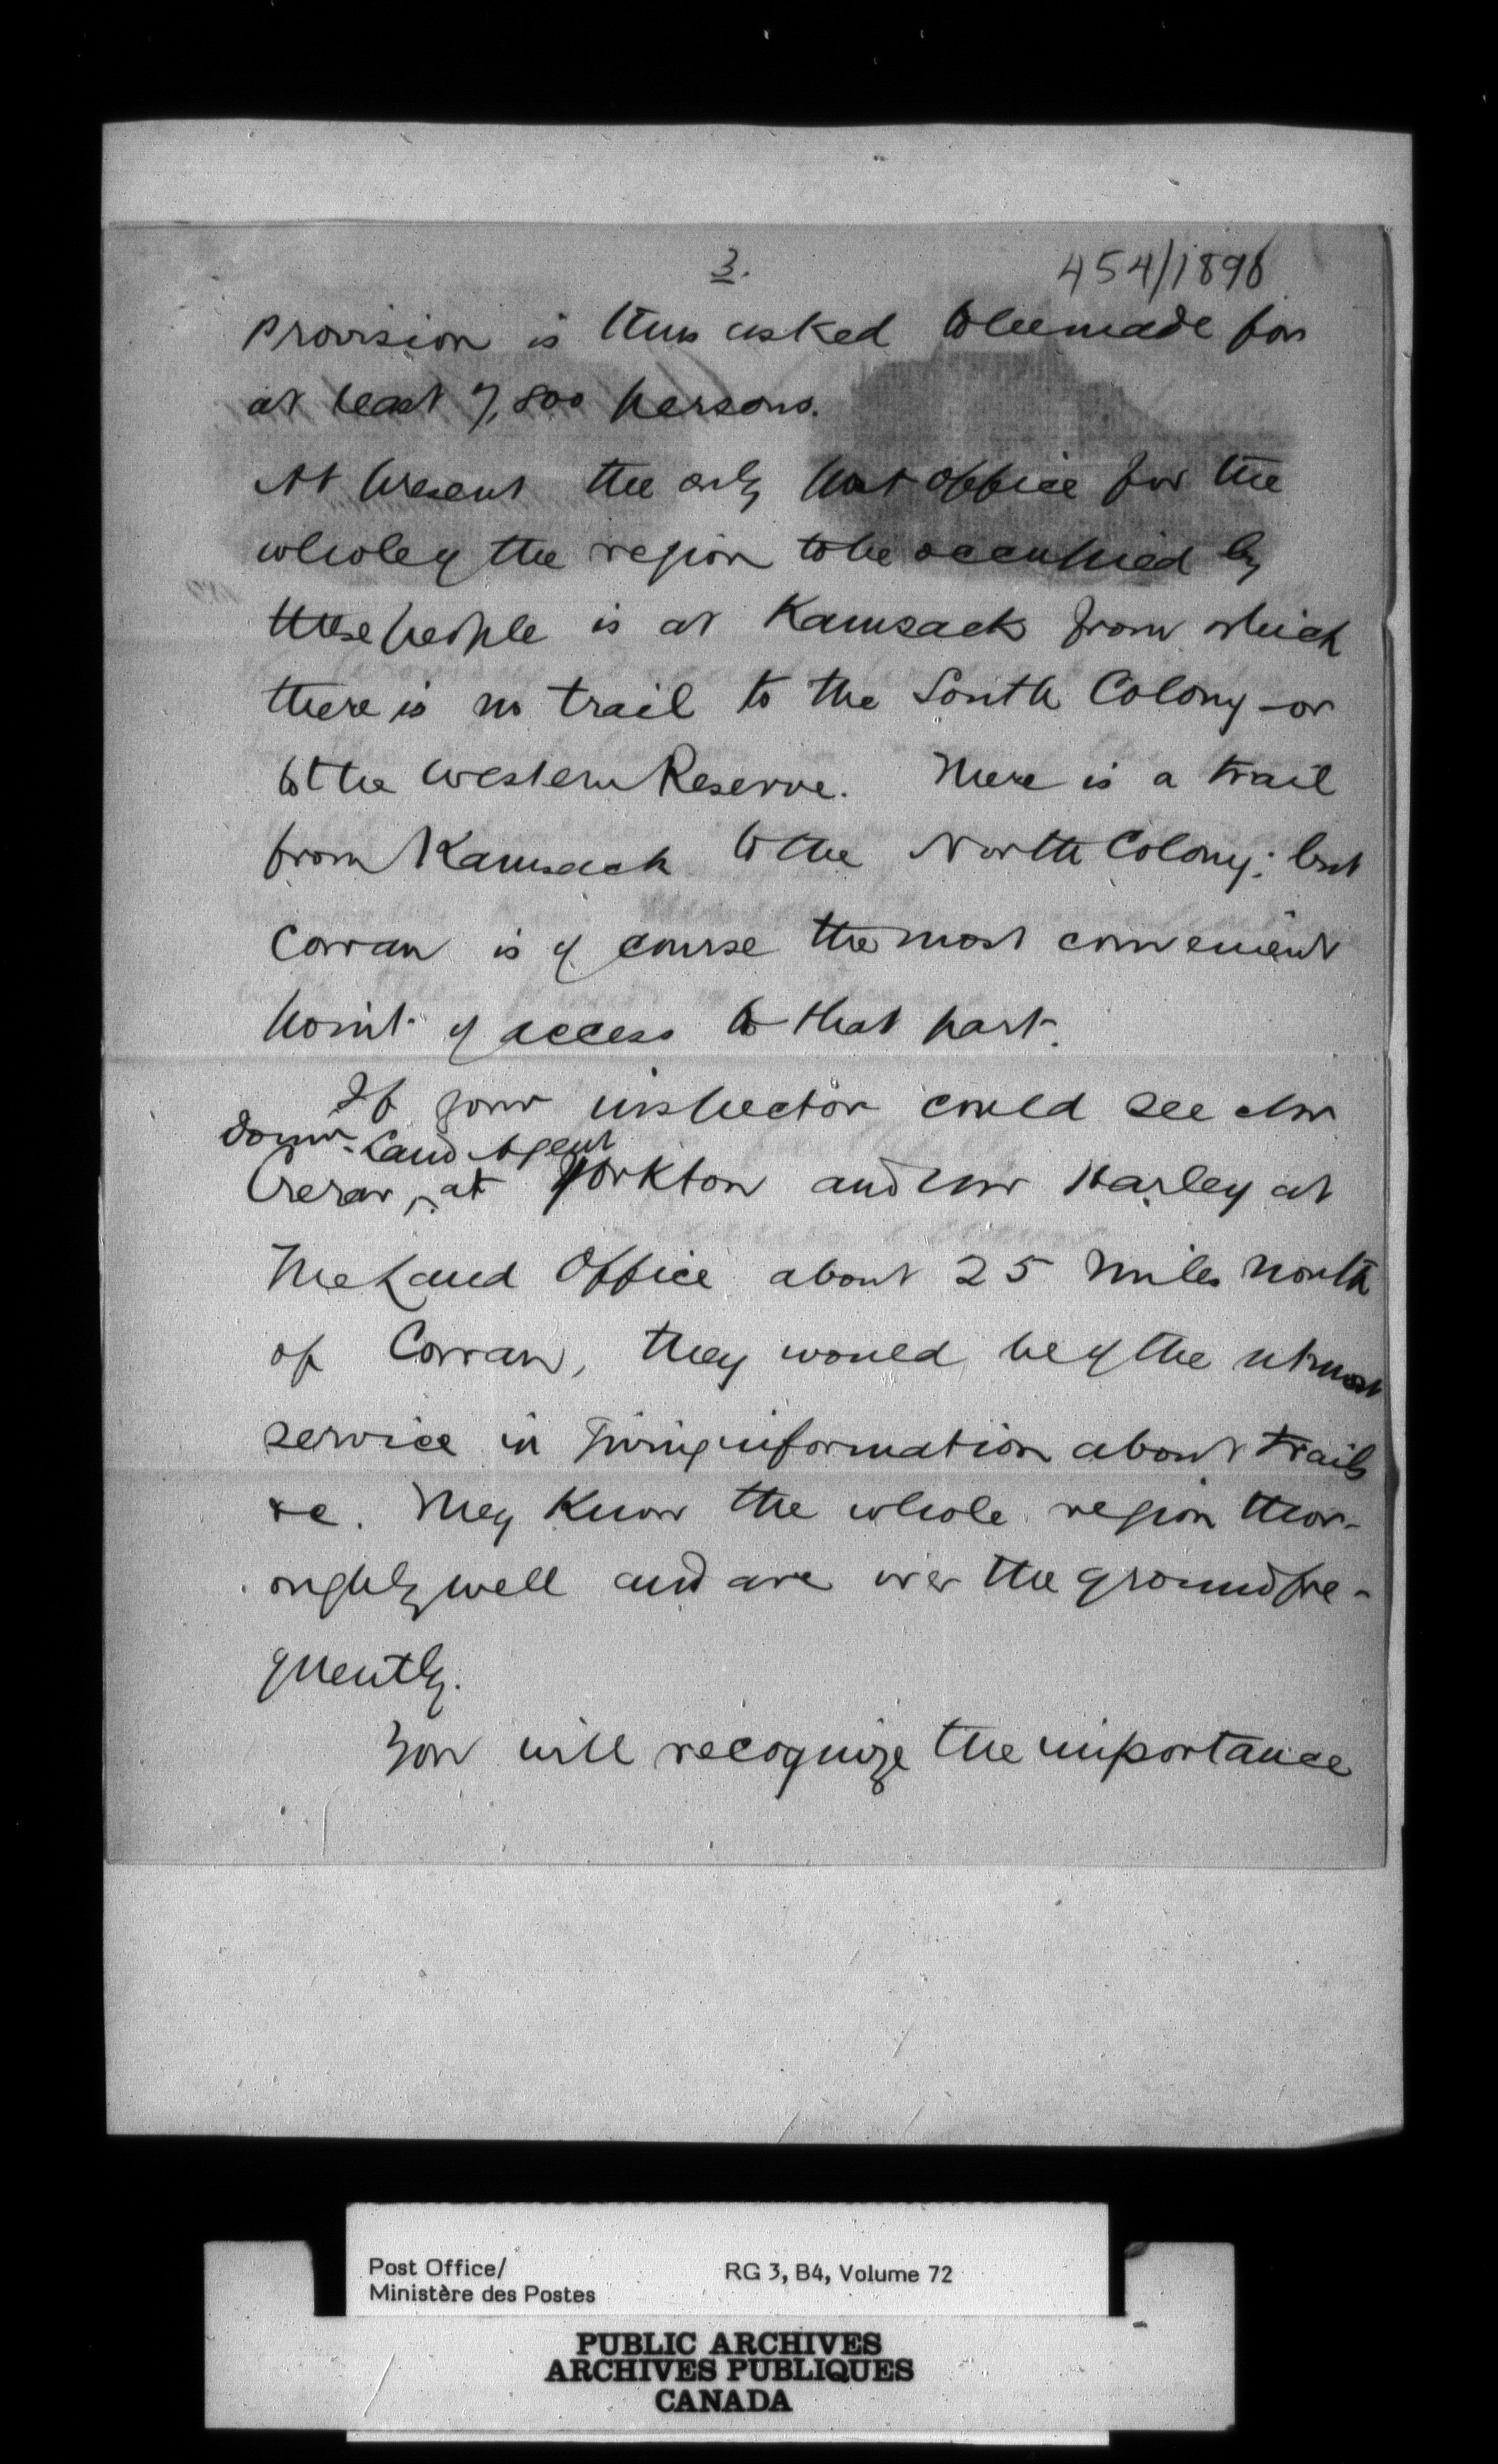 3.
454/1896
provision is thus asked to be made for
at least 7,800 persons.
At present the only post office for the
whole of the region to be occupied by
these people is at Kamsack from which
there is no trail to the South Colony or
to the Western Reserve. There is a trail
from Kamsack to the North Colony; but
Corran is of course the most convenient
point of access to that part.
If your inspector could see Mr
Domn. Land Agent
Crerar, ^ at Yorkton and Mr Harley at
The Land Office about 25 miles north
of Corran, they would be of the utmost
service in giving information about trails
&c. They know the whole region thor-
oughly well and are over the ground fre-
quently.
You will recognize the importance
Post Office/
Ministère des Postes
RG 3, B4, Volume 72
PUBLIC ARCHIVES
ARCHIVES PUBLIQUES
CANADA